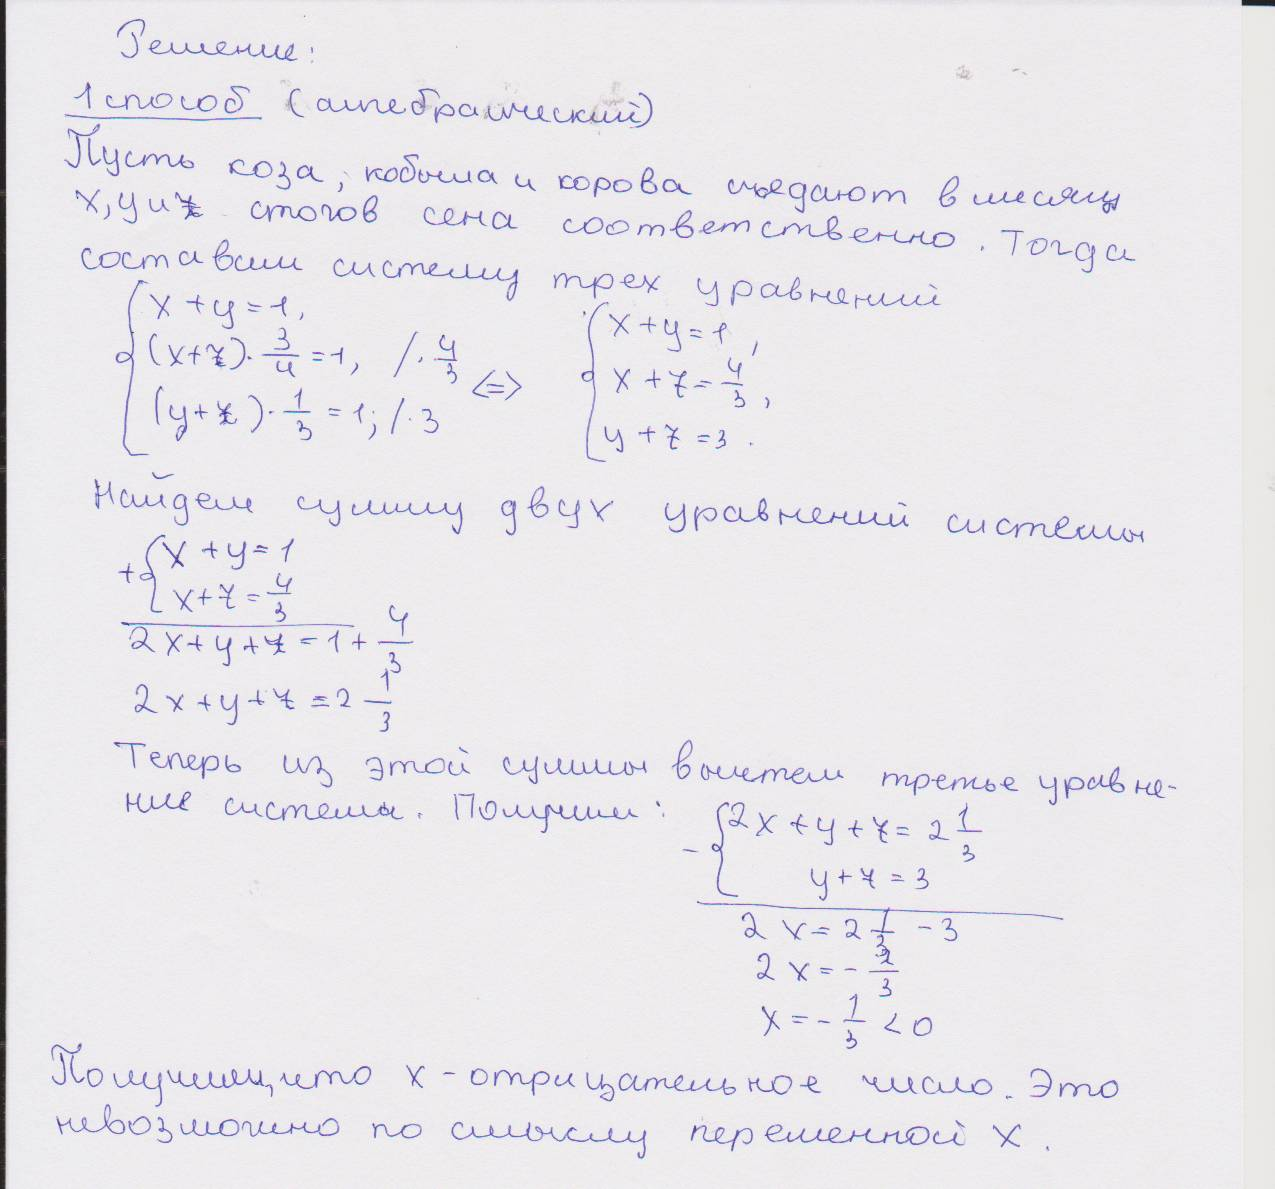 Решение:
1 способ (алгебраический)
Пусть коза, кобыла и корова съедают в месяц
x, y и z стогов сена соответственно. Тогда
составим систему трех уравнений
{ x + y = 1,
(x+z)·3/4 = 1, /·4/3
(y+z)·1/3 = 1; /·3
<=>
{ x + y = 1,
x + z = 4/3,
y + z = 3.
Найдем сумму двух уравнений системы
+ { x + y = 1
x + z = 4/3
2x + y + z = 1 + 4/3
2x + y + z = 2 1/3
Теперь из этой суммы вычтем третье уравне-
ние системы. Получим:
- { 2x + y + z = 2 1/3
y + z = 3
2x = 2 1/3 - 3
2x = - 2/3
x = - 1/3 < 0
Получили, что x - отрицательное число. Это
невозможно по смыслу переменной x.